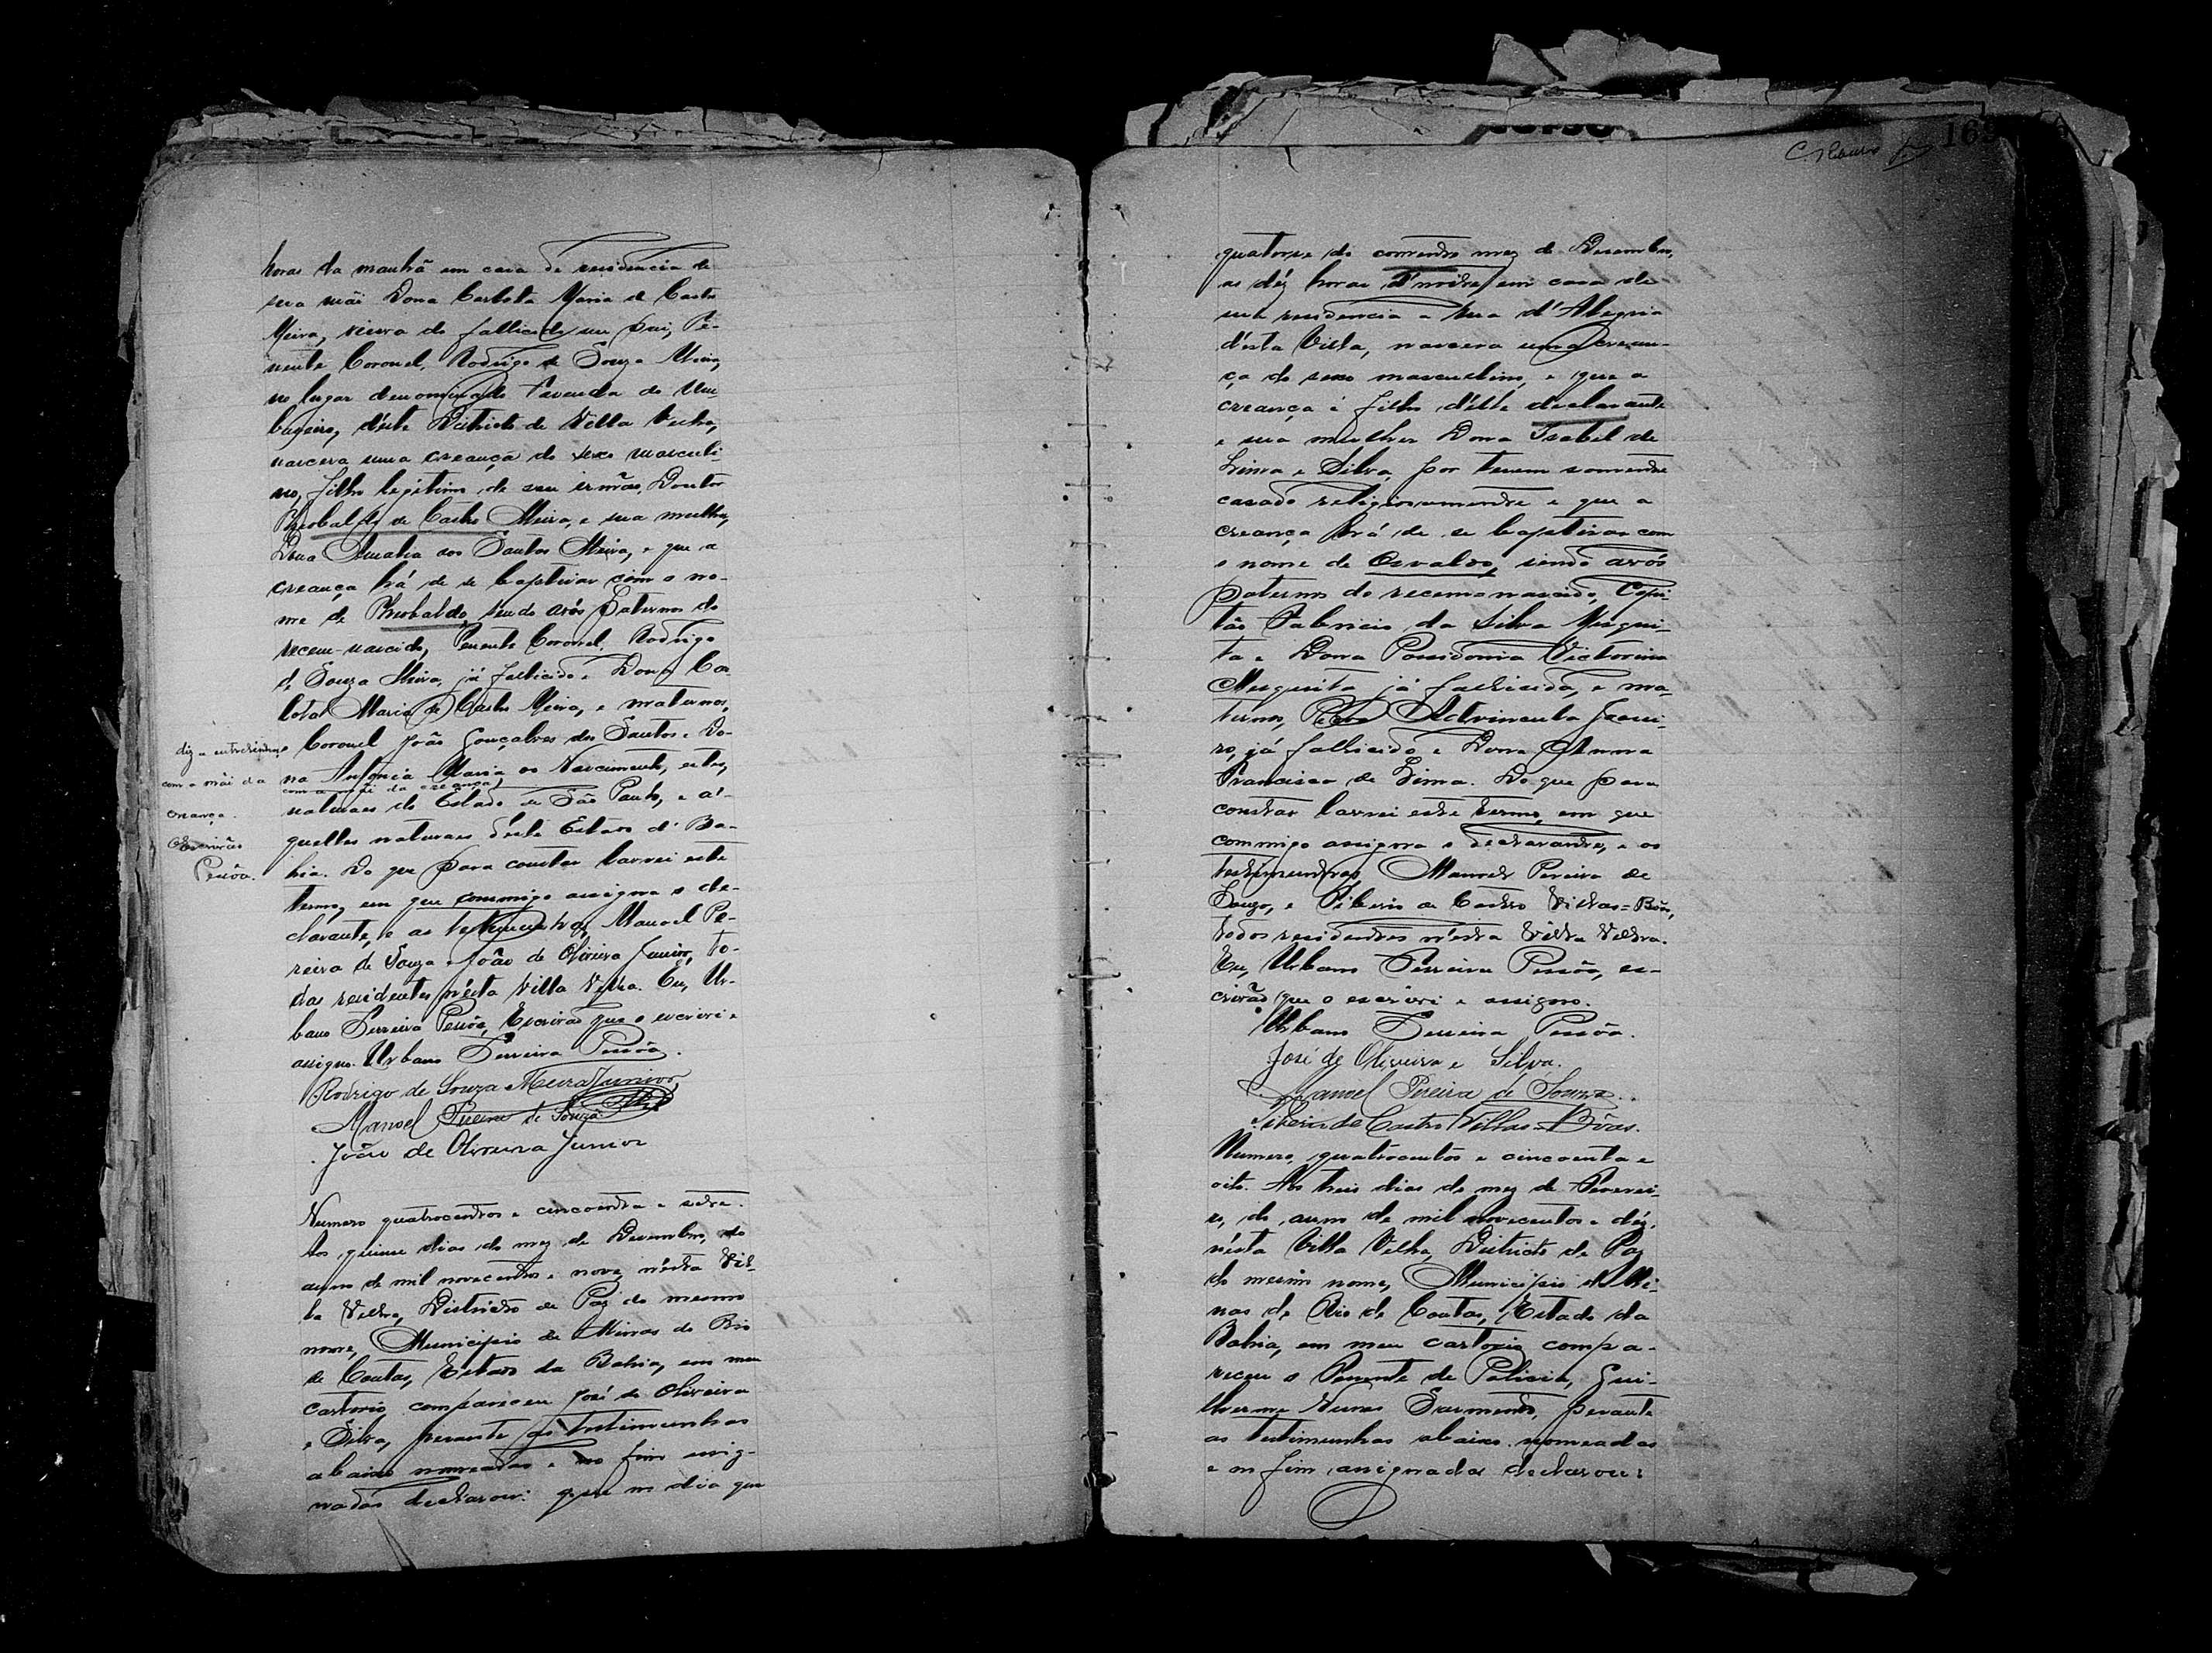 horas da manhã em casa de residencia de
sua mãi Dona Carlota Maria de Castro
Meira, viuva do fallecido seu pai, Te-
nente Coronel, Rodrigo de Souza Meira,
no lugar denominado Fazenda do Um-
buzeiro, d'este Districto de Villa Velha,
nascera uma creança do sexo masculi-
no, filho legitimo de seu irmão, Doutor
Theobaldo de Castro Meira, e sua mulher,
Dona Amalia dos Santos Meira, e que a
creança há de se baptisar com o no-
me de Theobaldo, sendo avós paternos do
recem-nascido, Tenente Coronel, Rodrigo
de Souza Meira, já fallecido e Dona Car-
lota Maria de Castro Meira, e maternos,
Coronel João Gonçalves dos Santos e Do-
na Antonia Maria do Nascimento, estes,
com a mãi da creança,
naturaes do Estado de São Paulo, e a'-
quelles naturaes d'este Estado d' Ba-
hia. Do que para constar lavrei este
termo, em que commigo assigna o de-
clarante, e as testimunhas, Manoel Pe-
reira de Souza e João de Oliveira Junior, to-
dos residentes n'ésta Villa Velha. Eu, Ur-
bano Ferreira Pessôa, Escrivão que o escrivi e
assigno. Urbano Ferreira Pessôa.
Rodrigo de Souza Meira Junior
Manoel Pereira de Souza
João de Oliveira Junior
digo entrelinhas
com a mãi da
creança.
O Escrivão
Pessôa.
Numero quatrocentos e cincoenta e sete.
Aos quinse dias do mez de Desembro, do
anno de mil novecentos e nove, n'ésta Vil-
la Velha, Districto de Paz do mesmo
nome, Municipio de Minas do Rio
de Contas, Estado da Bahia, em meu
cartorio compareceu José de Oliveira
e Silva, perante as testimunhas
abaixo nomeadas e no fim assig-
nadas declarou: que no dia qua
169
quatorse do corrente mez de Desembro,
as déz horas d' noite, em casa de
sua residencia a rua d' Alegria
d'ésta Villa, nascera uma crean-
ça do sexo masculino, e que a
creança é filho d'élle declarante
e sua mulher Dona Isabel de
Lima e Silva, por terem somente
casado religiosamente e que a
creança há de se baptisar com
o nome de Osvaldo, sendo avós
paternos do recem-nascido, Capi-
tão Fabricio da Silva Mesqui-
ta e Dona Possidonia Victorina
Mesquita já fallecida, e ma-
ternos, Janui-
ro, já fallecido e Dona Anna
Francisca de Lima. Do que para
constar lavrei este termo, em que
commigo assigna o declarante, e as
testimunhas, Manoel Pereira de
Souza, e Tiberio de Castro Villas=Bôas,
todos residentes n'ésta Villa Velha.
Eu, Urbano Ferreira Pessôa, es-
crivão que o escrivi e assigno.
Urbano Ferreira Pessôa.
José de Oliveira e Silva.
Manoel Pereira de Souza.
Tiberio de Castro Villas-Bôas.
Numero, quatrocentos e cincoenta e
oito. Aos treis dias do mez de Feverei-
ro, do anno de mil novecentos e déz,
n'ésta Villa Velha, Districto de Paz
do mesmo nome, Municipio de Mi-
nas do Rio de Contas, Estado da
Bahia, em meu cartorio compa-
receu o Tenente de Policia, Gui-
lherme Nunes Sarmento, perante
as testimunhas abaixo nomeadas
e no fim assignadas declarou: